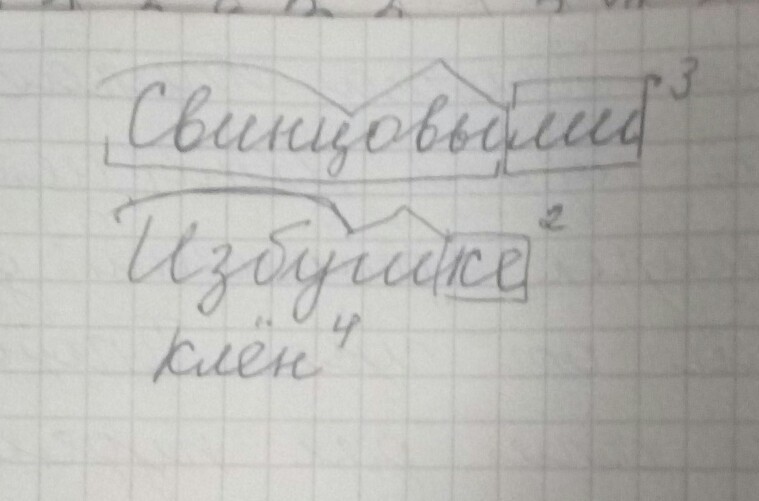 Свинцовыми³
Избушке²
клён⁴